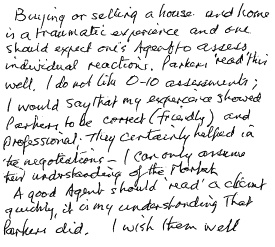 Buying or selling a house and home
is a traumatic experience and one
should expect one's Agent to assess
individual reactions. Parkers 'read' this
well. I do not like 0-10 assessments;
I would say that my experience showed
Parkers to be correct (friendly) and
professional. They certainly helped in
the negotiations - I can only assume
their understanding of the Market.
A good Agent should 'read' a client
quickly, it is my understanding that
Parkers did. I wish them well